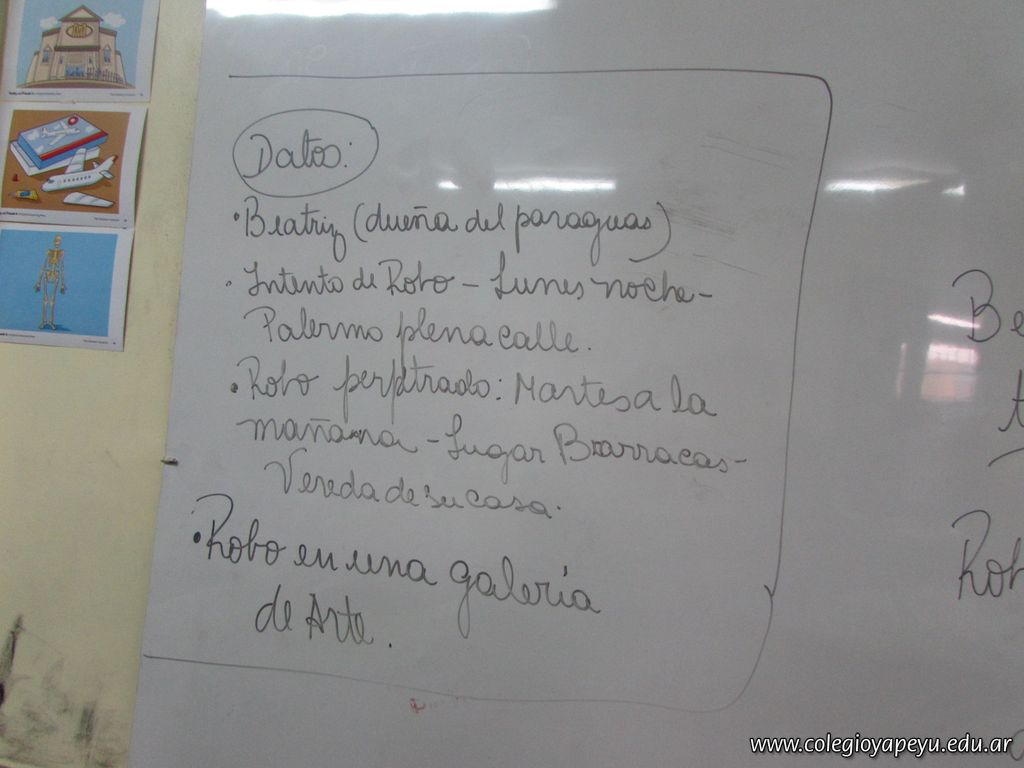 Datos:
• Beatriz (dueña del paraguas)
• Intento de Robo - Lunes noche -
Palermo plena calle.
• Robo perptrado: Martes a la
mañana - Lugar Barracas -
Vereda de su casa.
• Robo en una galería
de Arte.
Be
t
Rob
www.colegioyapeyu.edu.ar